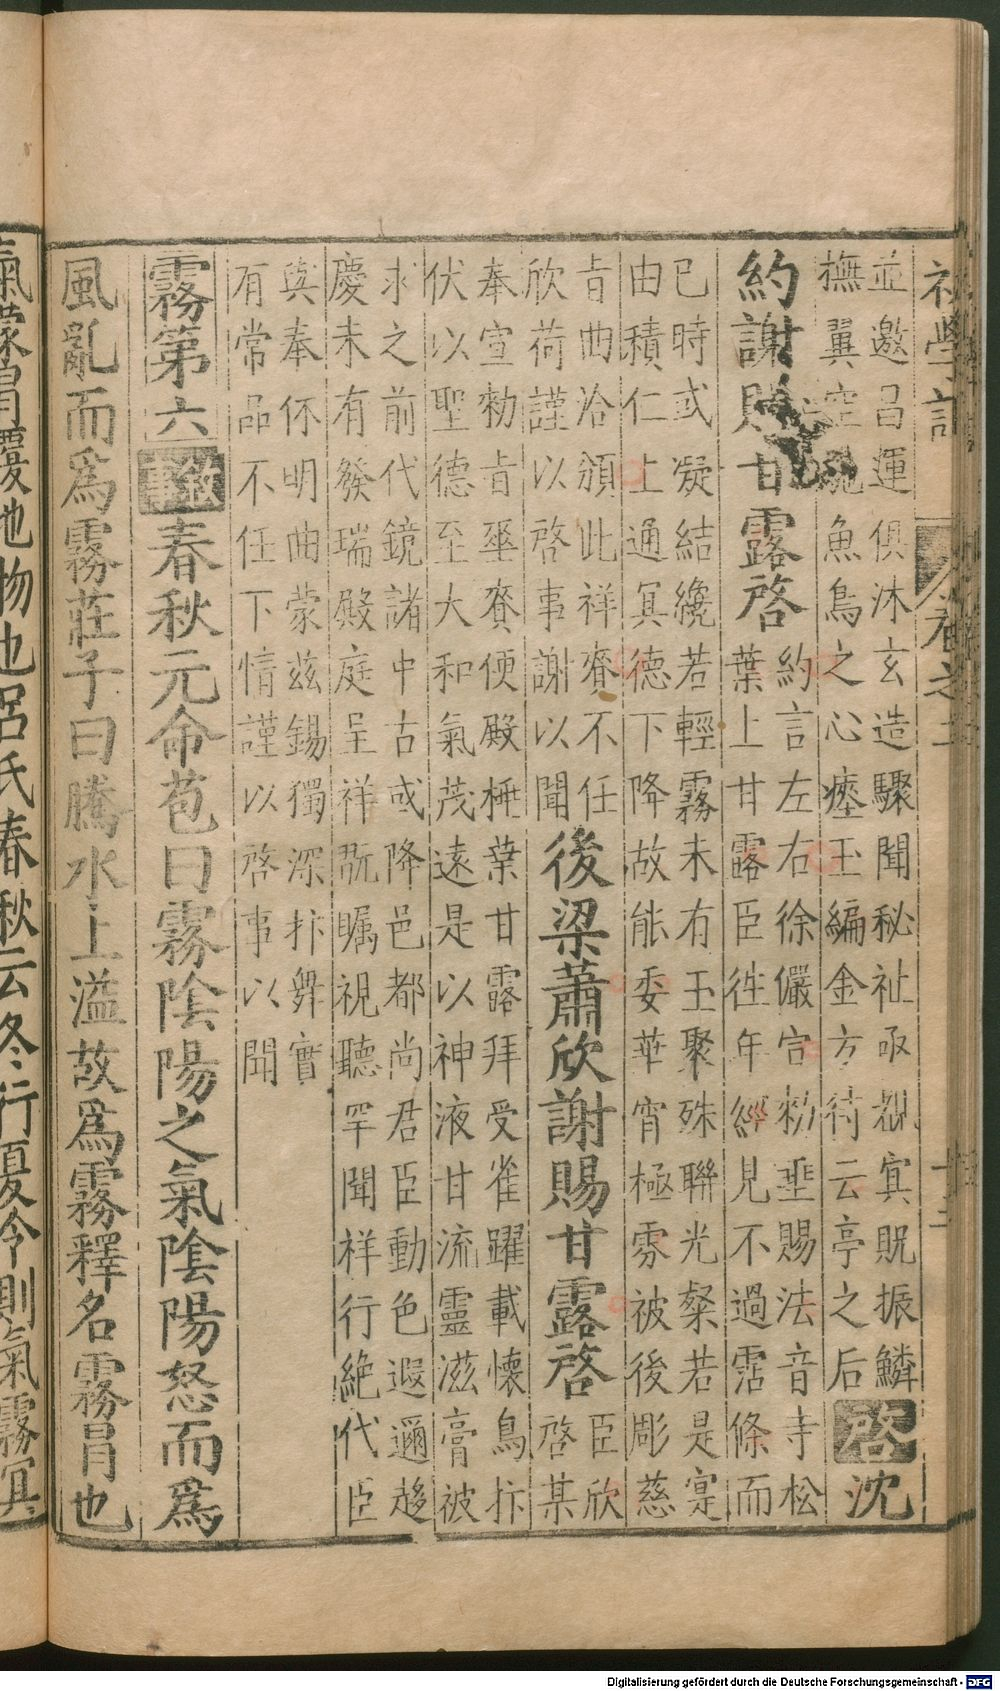 初學記 卷之二
並邀昌運俱沐玄造驟聞秘祉亟覩寘貺振鱗
撫翼空競魚鳥之心瘞玉編金方待云亭之后
啓沈
約謝賜甘露啓
約言左右徐儼宣粉垂賜法音寺松
葉上甘露臣徃年經見不過霑條而
已時或凝結纔若輕霧未有玉聚殊聯光粲若是寔
由積仁上通冥德下降故能委華宵極雰被後彫慈
旨曲洽頒此祥賚不任
欣荷謹以啓事謝以聞
後梁蕭欣謝賜甘露啓
臣欣
啓某
奉宣勑旨垂賚便殿棰葉甘露拜受雀躍載懷鳥抃
伏以聖德至大和氣茂遠是以神液甘流靈滋膏被
求之前代鏡諸中古或降邑都尚君臣動色遐邇趍
慶未有發瑞殿庭呈祥翫矚視聽罕聞祥行絶代臣
與奉伓明曲蒙茲錫獨深抃舞實
有常品不任下情謹以啓事以聞
霧第六敘事春秋元命苞曰霧陰陽之氣陰陽怒而爲
風亂而爲霧莊子曰騰水上溢故爲霧釋名霧冐也
氣蒙冒覆地物也呂氏春秋云冬行夏令則氣霧冥
Digitalisierung gefördert durch die Deutsche Forschungsgemeinschaft - DFG